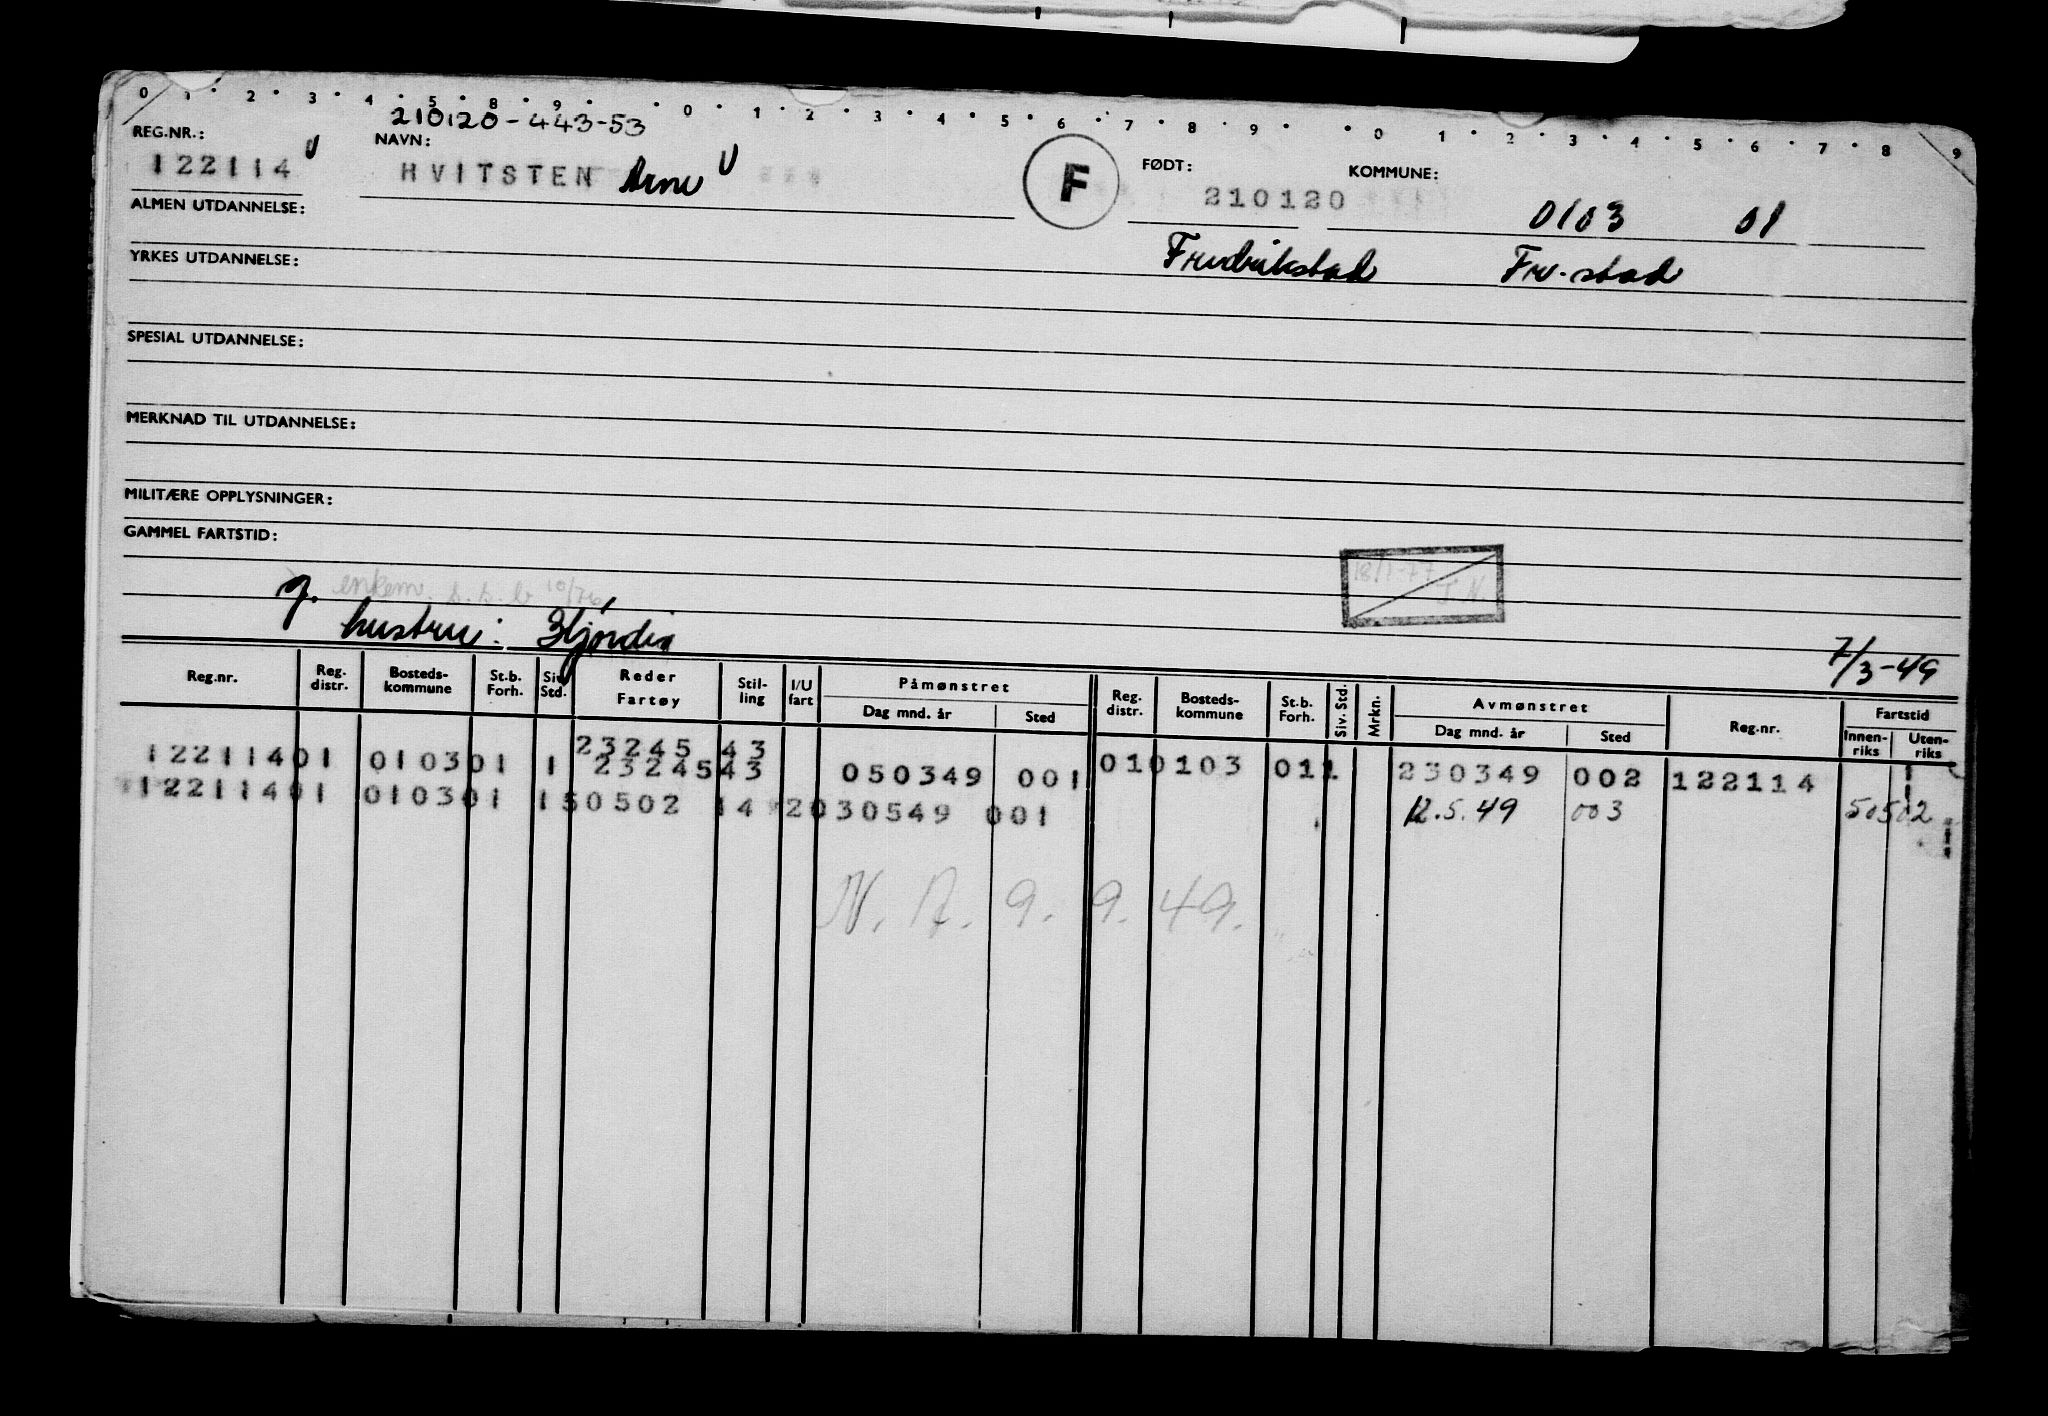 0 1 2 3 4 5 8 9 0 1 2 3 4 5 6 7 8 9 0 1 2 3 4 5 6 7 8 9
210120-443-53
REG.NR.: NAVN: FØDT: KOMMUNE:
122114 HVITSTEN Arne F 210120 0103 01
ALMEN UTDANNELSE:
Fredrikstad Fr.stad
YRKES UTDANNELSE:
SPESIAL UTDANNELSE:
MERKNAD TIL UTDANNELSE:
MILITÆRE OPPLYSNINGER:
GAMMEL FARTSTID:
g. enkem. 10/76
hustru: Hjørdis
7/3-49
Reg.nr. Reg. distr. Bosteds-kommune St.b. Forh. Siv. Std. Reder Fartøy Stil-ling I/U fart Påmønstret Dag mnd. år Sted Reg. distr. Bosteds-kommune St.b. Forh. Siv. Std. Mrkn. Avmønstret Dag mnd. år Sted Reg.nr. Fartstid Innen-riks Uten-riks
23245 43
12211401 010301 1 2324543 050349 001 010103 011 230349 002 122114
12211401 010301 150502 14 2030549 001 12.5.49 003 50502
N. A. 9. 9. 49.